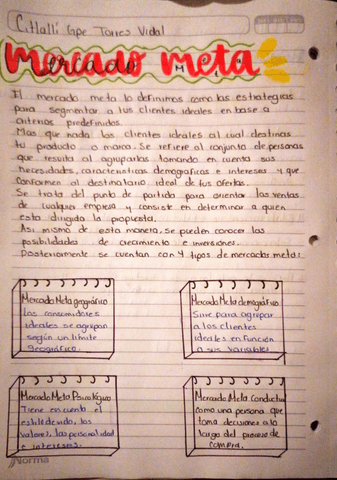 Citlalli Gpe Torres Vidal
mercado meta
El mercado meta lo definimos como las estrategias
para segmentar a tus clientes ideales en base a
criterios predefinidos
Mas que nada los clientes ideales al cual destinas
tu producto o marca. Se refiere al conjunto de personas
que resulta al agruparlas tomando en cuenta sus
necesidades, características demograficas e intereses y que
conforman el destinatario ideal de tus ofertas.
Se trata del punto de partida para orientar las ventas
de cualquier empresa y consiste en determinar a quien
esta dirigida la propuesta.
Asi mismo de esta manera, se pueden conocer las
posibilidades de crecimiento e inversiones.
Posteriormente se cuentan con 4 tipos de mercados meta:
Mercado Meta geográfico
Los consumidores
ideales se agrupan
según un limite
geográfico.
Mercado Meta demográfico
Sirve para agrupar
a los clientes
ideales en función
a sus variables.
Mercado Meta Psicológico
Tiene en cuenta el
estilo de vida, los
valores, las personalidad
e intereses.
Mercado Meta Conductual
como una persona que
toma decisiones a lo
largo del proceso de
compra.
Norma